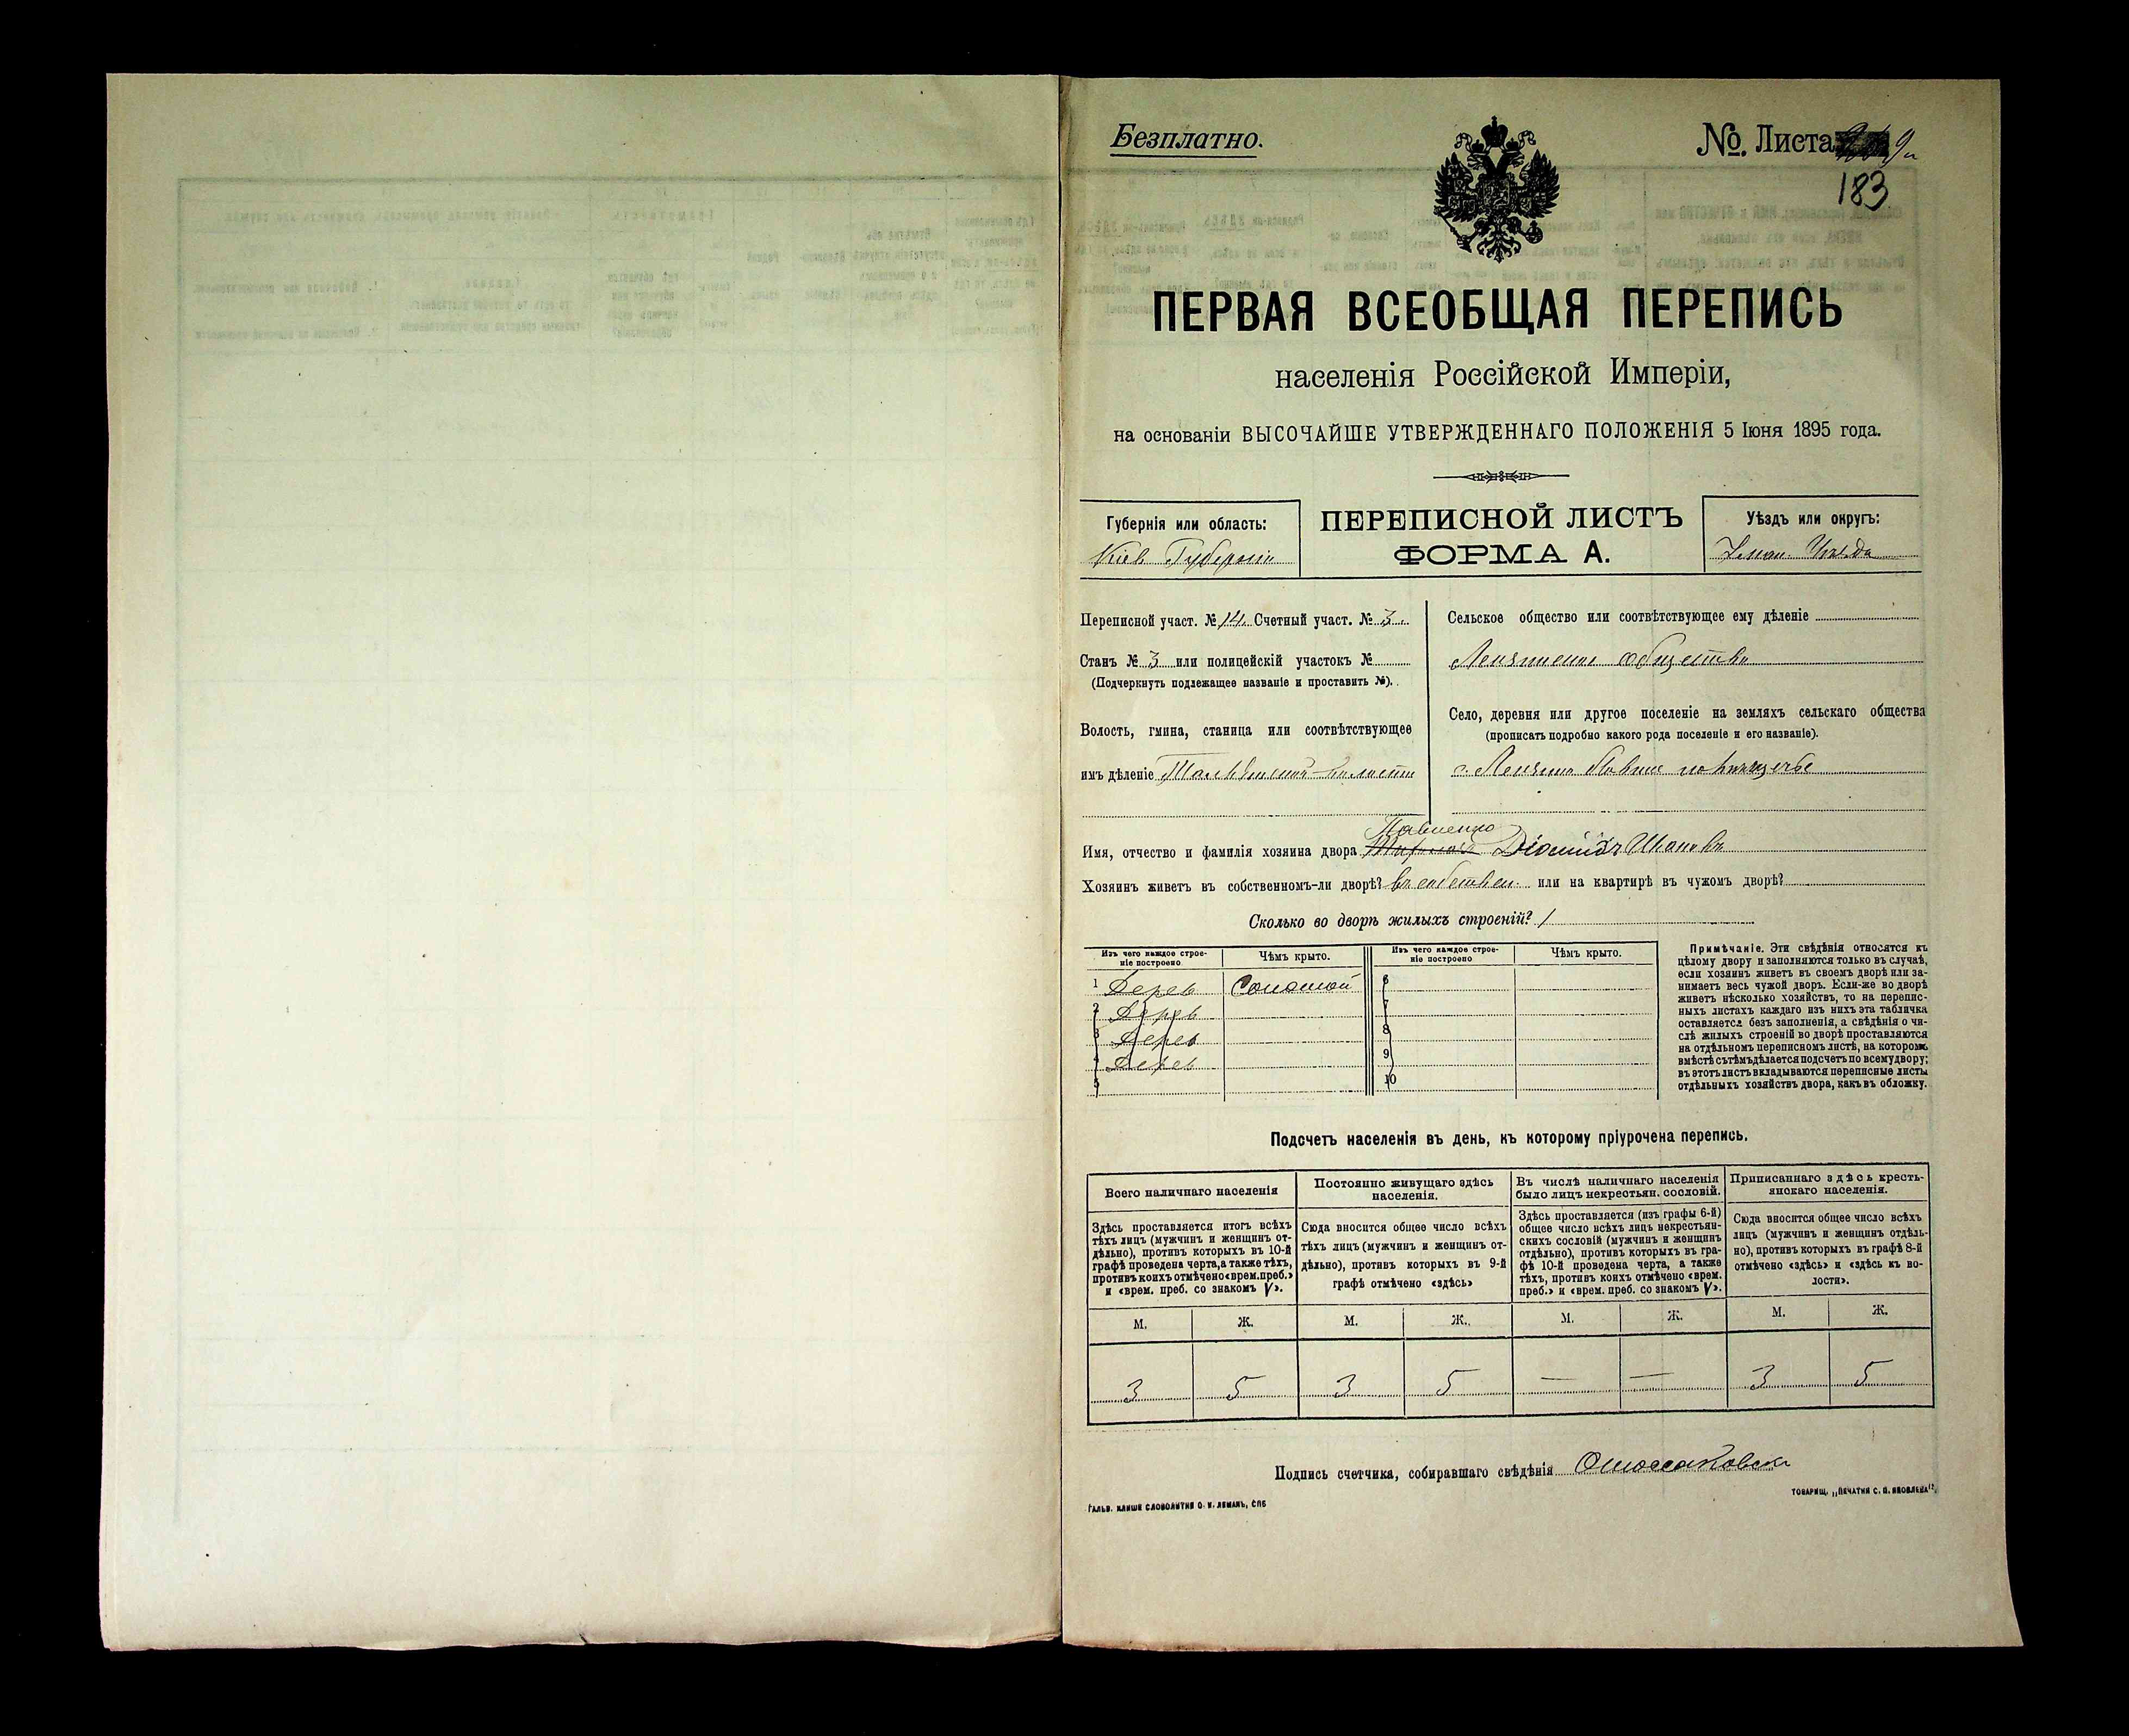 Безплатно.
№. Листа
183
ПЕРВАЯ ВСЕОБЩАЯ ПЕРЕПИСЬ
населенія Россійской Имперіи,
на основаніи ВЫСОЧАЙШЕ УТВЕРЖДЕННАГО ПОЛОЖЕНІЯ 5 Іюня 1895 года.
Губернія или область:
Кіев Губерніи
ПЕРЕПИСНОЙ ЛИСТЪ
ФОРМА А.
Уѣздъ или округъ:
Уман. Уѣзда
Переписной участ. № 14. Счетный участ. № 3.
Станъ № 3 или полицейскій участокъ №
(Подчеркнуть подлежащее названіе и проставить №).
Волость, гмина, станица или соотвѣтствующее
имъ дѣленіе волости
Сельское общество или соотвѣтствующее ему дѣленіе
общества
Село, деревня или другое поселеніе на земляхъ сельскаго общества
(прописать подробно какого рода поселеніе и его названіе).
с.
Имя, отчество и фамилія хозяина двора
Хозяинъ живетъ въ собственномъ-ли дворѣ? въ собствен. или на квартирѣ въ чужомъ дворѣ?
Сколько во дворѣ жилыхъ строеній? 1
Изъ чего каждое строе-
ніе построено
Чѣмъ крыто.
Изъ чего каждое строе-
ніе построено
Чѣмъ крыто.
1 Дерев Соломой 6
2 Дерев 7
3 Дерев 8
4 Дерев 9
5 10
Примѣчаніе. Эти свѣдѣнія относятся къ
цѣлому двору и заполняются только въ случаѣ,
если хозяинъ живетъ въ своемъ дворѣ или за-
нимаетъ весь чужой дворъ. Если-же во дворѣ
живетъ нѣсколько хозяйствъ, то на перепис-
ныхъ листахъ каждаго изъ нихъ эта табличка
оставляется безъ заполненія, а свѣдѣнія о чи-
слѣ жилыхъ строеній во дворѣ проставляются
на отдѣльномъ переписномъ листѣ, на которомъ
вмѣстѣ съ тѣмъ дѣлается подсчетъ по всему двору;
въ этотъ листъ вкладываются переписные листы
отдѣльныхъ хозяйствъ двора, какъ въ обложку.
Подсчетъ населенія въ день, къ которому пріурочена перепись.
Всего наличнаго населенія
Постоянно живущаго здѣсь
населенія.
Въ числѣ наличнаго населенія
было лицъ некрестьян. сословій.
Приписаннаго здѣсь кресть-
янскаго населенія.
Здѣсь проставляется итогъ всѣхъ
тѣхъ лицъ (мужчинъ и женщинъ от-
дѣльно), противъ которыхъ въ 10-й
графѣ проведена черта, а также тѣхъ,
противъ коихъ отмѣчено «врем. преб.»
и «врем. преб. со знакомъ V».
Сюда вносится общее число всѣхъ
тѣхъ лицъ (мужчинъ и женщинъ от-
дѣльно), противъ которыхъ въ 9-й
графѣ отмѣчено «здѣсь»
Здѣсь проставляется (изъ графы 6-й)
общее число всѣхъ лицъ некрестьян-
скихъ сословій (мужчинъ и женщинъ
отдѣльно), противъ которыхъ въ гра-
фѣ 10-й проведена черта, а также
тѣхъ, противъ коихъ отмѣчено «врем.
преб.» и «врем. преб. со знакомъ V».
Сюда вносится общее число всѣхъ
лицъ (мужчинъ и женщинъ отдѣль-
но), противъ которыхъ въ графѣ 8-й
отмѣчено «здѣсь» и «здѣсь къ во-
лости».
М. Ж. М. Ж. М. Ж. М. Ж.
3 5 3 5 — — 3 5
Подпись счетчика, собиравшаго свѣдѣнія
ГАЛЬВ. КЛИШЕ СЛОВОЛИТНИ О. И. ЛЕМАНЪ, СПБ
ТОВАРИЩ. „ПЕЧАТНЯ С. П. ЯКОВЛЕВА“.